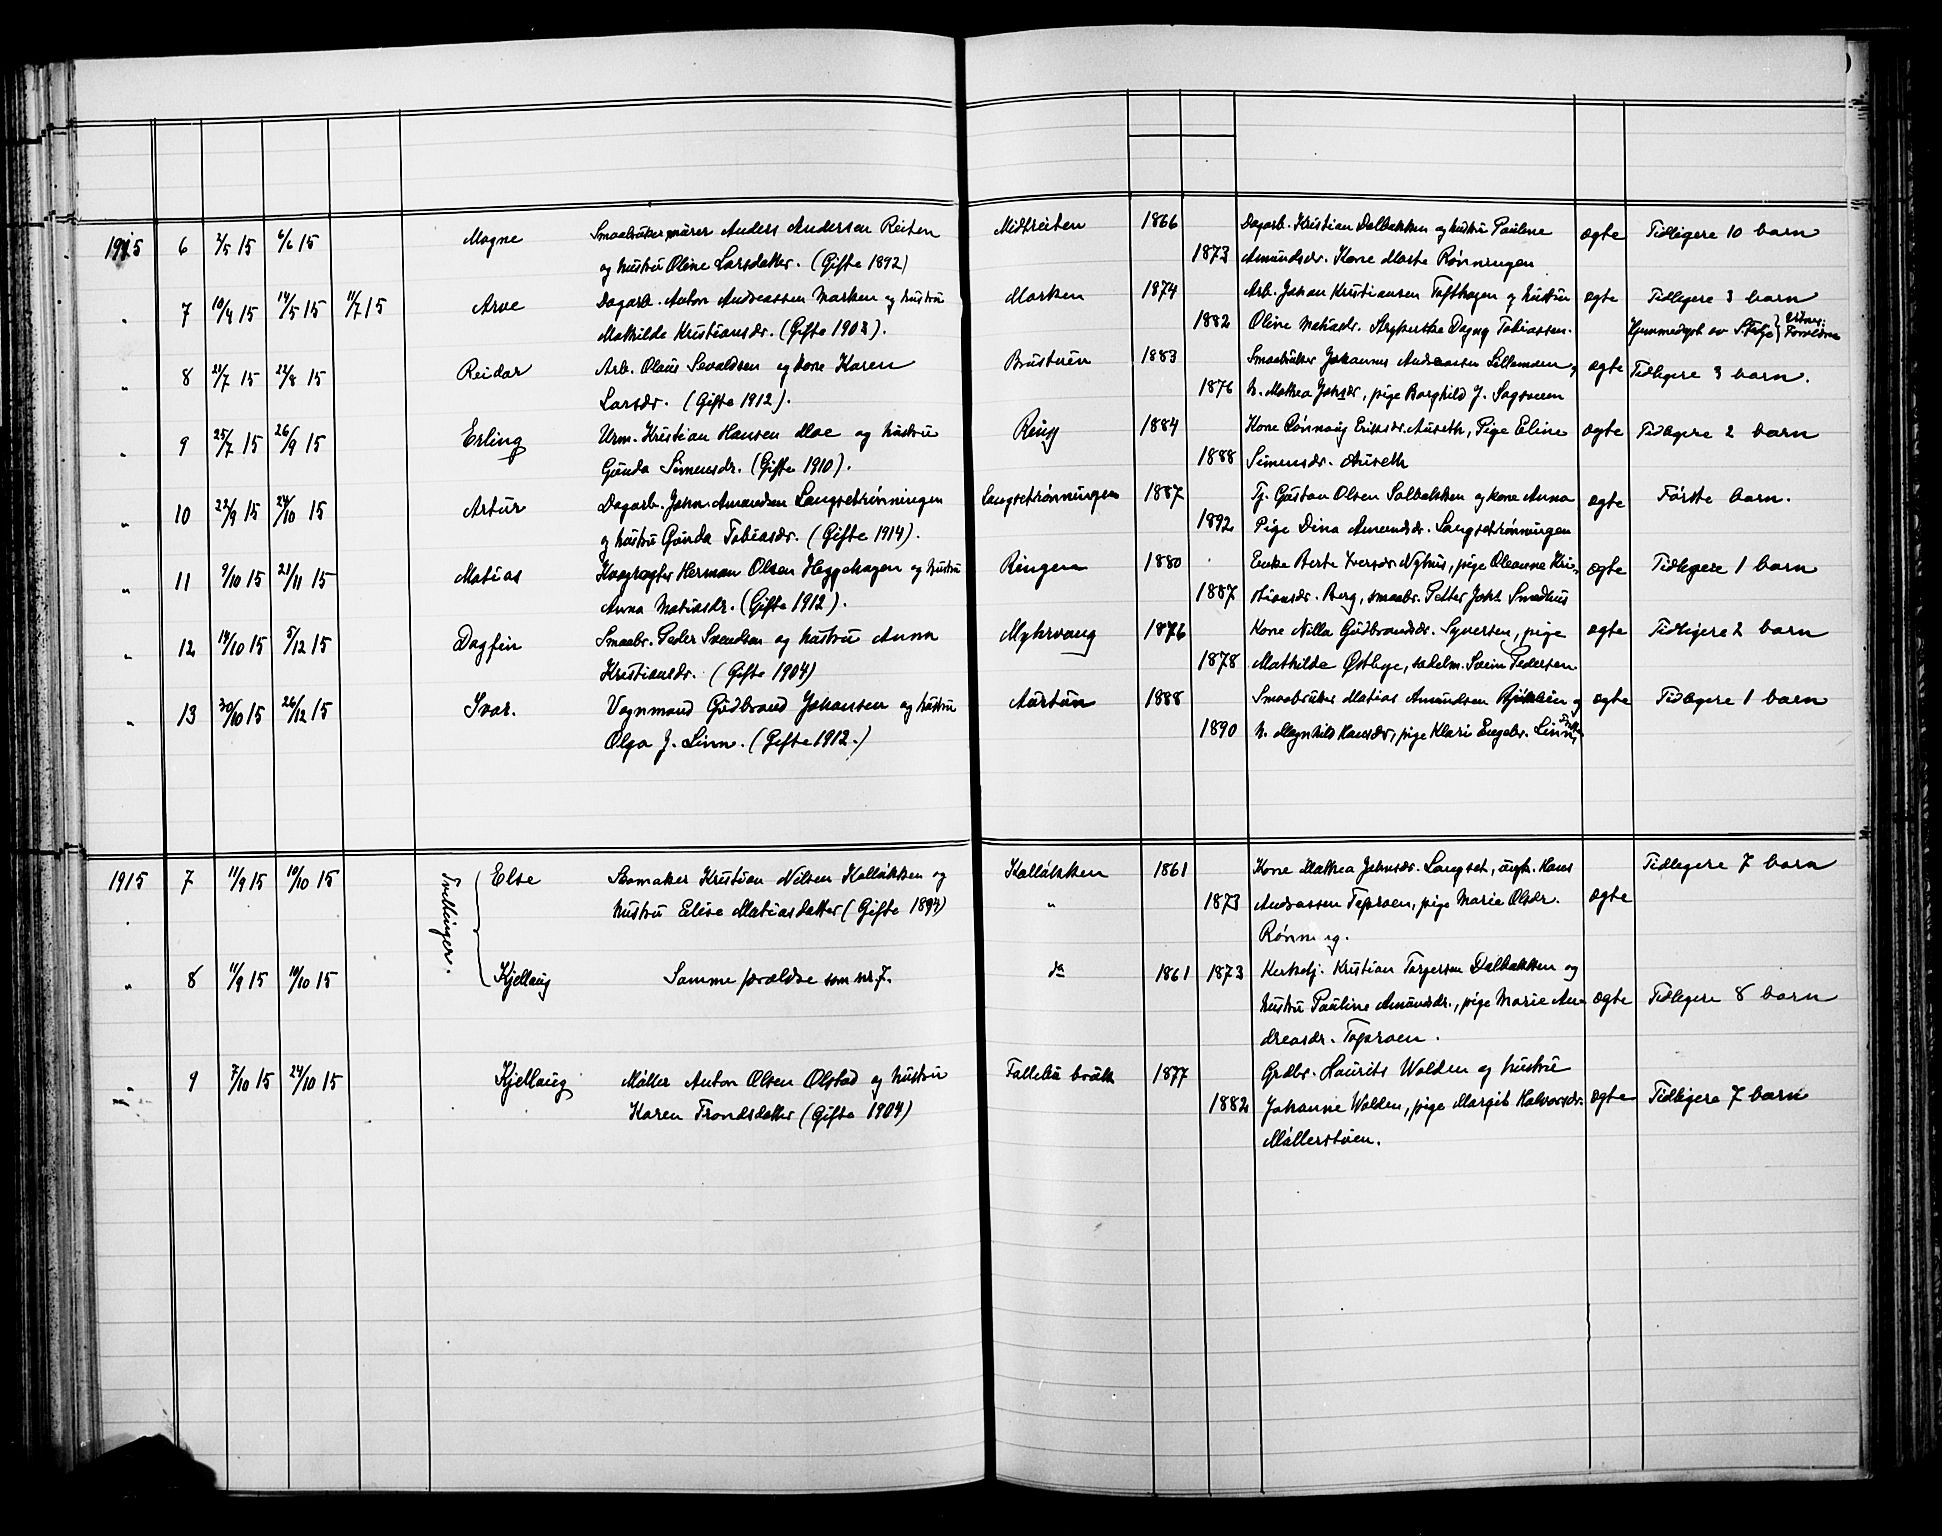 1915 6 2/5 15 6/6 15 Magne Smaabruker, murer Anders Anderson Reiten Midtreiten 1866 Dagarb. Kristian Dalbakken og hustru Pauline ægte Tidligere 10 barn
og hustru Oline Larsdatter. (Gifte 1892) 1873 Amundsdr. Kone Marte Rønningen
" 7 10/4 15 14/5 15 11/7 15 Arve Dagarb. Anton Andreassen Marken og hustru Marken 1874 Arb. Johan Kristiansen Tofthagen og hustru ægte Tidligere 3 barn
Mathilde Kristiansdr. (Gifte 1903). 1882 Oline Dagny Tobiassen. Hjemmedøpt av
" 8 21/7 15 22/8 15 Reidar Arb. Olaus Sevaldsen og kone Karen Brustuen 1883 Smaabruker Johannes Andreassen og ægte Tidligere 3 barn.
Larsdr. (Gifte 1912). 1876 h. Mathea Johsdr, pige Borghild J. Sagveen
" 9 25/7 15 26/9 15 Erling Urm. Kristian Hansen Moe og hustru Ring 1884 Kone Rønnaug Eriksdr. Aureth, Pige Eline ægte Tidligere 2 barn
Gunda Simensdr. (Gifte 1910). 1888 Simensdr. Aureth
" 10 22/9 15 24/10 15 Artur Dagarb. Johan Amundsen Langsetrønningen Langsetrønningen 1887 Tj. Gustav Olsen Solbakken og kone Anna ægte Første barn.
og hustru Gunda Tobiasdr. (Gifte 1914). 1892 Pige Dina Amundsdr. Langsetrønningen
" 11 9/10 15 21/11 15 Matias Herman Olsen Heggehagen og hustru Ringen 1880 Enke Berte Iversdr. Nyhus, pige Oleanne Kri- ægte Tidligere 1 barn
Anna Matiasdr. (Gifte 1912). 1887 stiansdr. Berg, smaabr. Petter Johs Smedhus
" 12 14/10 15 5/12 15 Dagfin Smaabr. Peder Svendsen og hustru Anna Myhrvang 1876 Kone Nilla Gudbrandsdr. Syversen, pige ægte Tidligere 2 barn
Kristiansdr. (Gifte 1904) 1878 Mathilde Østbye, sadelm. Svein Pedersen
" 13 30/10 15 26/12 15 Ivar. Vognmand Gudbrand Johansen og hustru Aurtun 1888 Smaabruker Matias Amundsen og ægte Tidligere 1 barn
Olga J. Linn. (Gifte 1912.) 1890 h. Magnhild Hansdr, pige Klari Engebr. Linn
1915 7 11/9 15 10/10 15 Tvillinger. Else Skomaker Kristian Nilsen Kalløkken og Kalløkken 1861 Kone Mathea Johnsdr. Langset, ungk. Hans Tidligere 7 barn
hustru Elise Matiasdatter (Gifte 1894) " 1873 Andreassen Toproen, pige Marie Olsdr. ægte
Rønning.
" 8 11/9 15 10/10 15 Kjellaug Samme forældre som nr. 7. do 1861 1873 Kirketj. Kristian Torgersen Dalbakken og
hustru Pauline Amundsdr., pige Marie An- ægte Tidligere 8 barn
dreasdr. Toproen.
" 9 7/10 15 24/10 15 Kjellaug Møller Anton Olsen Olstad og hustru Follebu bruk 1877 Grdbr. Laurits Wolden og hustru
Karen Trondsdatter (Gifte 1904) 1882 Johanne Wolden, pige Margit Halvorsdr. ægte Tidligere 7 barn
Møllerstuen.